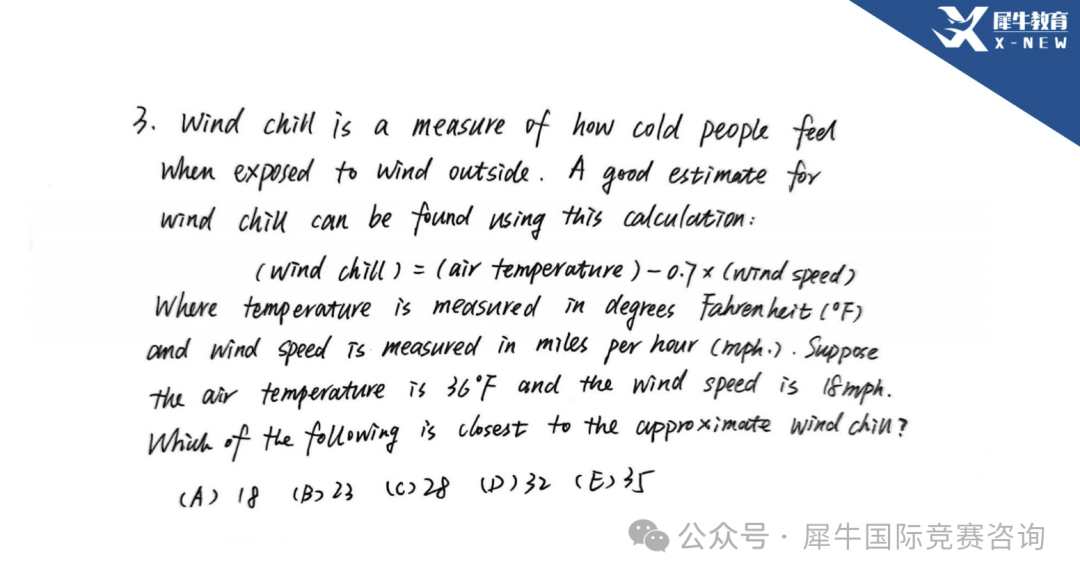 犀牛教育
X-NEW
3. Wind chill is a measure of how cold people feel
when exposed to wind outside. A good estimate for
wind chill can be found using this calculation:
(wind chill) = (air temperature) - 0.7 × (wind speed)
Where temperature is measured in degrees Fahrenheit (°F)
and wind speed is measured in miles per hour (mph.). Suppose
the air temperature is 36°F and the wind speed is 18mph.
Which of the following is closest to the approximate wind chill?
(A) 18 (B) 23 (C) 28 (D) 32 (E) 35
公众号 · 犀牛国际竞赛咨询